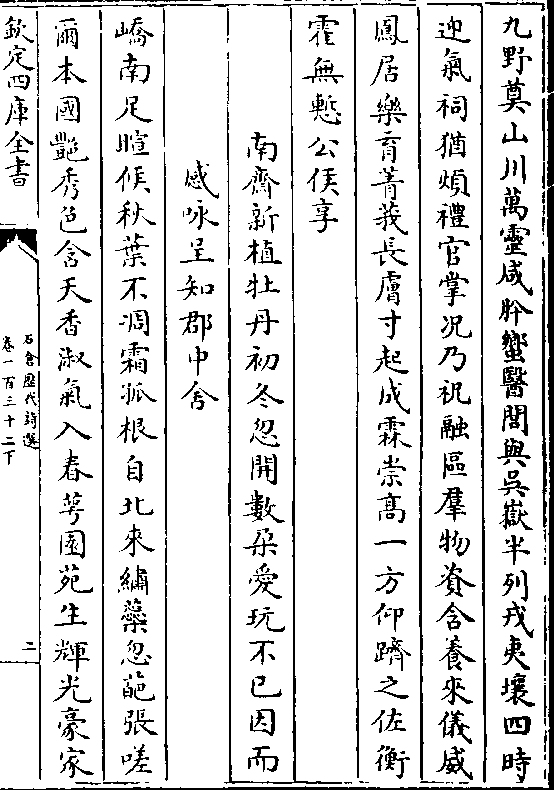 九野奠山川萬靈咸肸蠁醫閭與吳嶽半列戎夷壤四時
迎氣祠猶煩禮官掌况乃祝融區羣物資含養來儀威
鳳居樂育菁莪長膚寸起成霖崇高一方仰躋之佐衡
霍無慙公侯享
南齋新植牡丹初冬忽開數朵愛玩不已因而
感咏呈知郡中舍
嶠南足暄候秋葉不凋霜孤根自北來繡蘂忽葩張嗟
爾本國艷秀色含天香淑氣入春萼園苑生輝光豪家
欽定四庫全書
石倉歷代詩選
卷一百三十二下
二